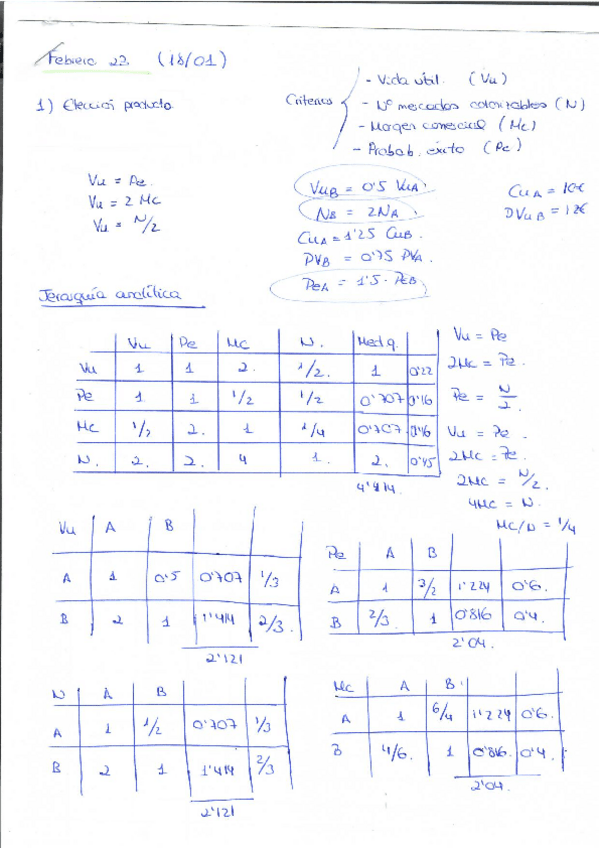 Febrero 22. (18/01)
1) Elección producto.
Criterios
- Vida útil. (Vu)
- Nº mercados (N)
- Margen comercial (Mc)
- Probab. éxito (Pe)
Vu = Pe.
Vu = 2 Mc
Vu = N/2
VuB = 0'5 VuA.
NB = 2NA
CuA = 1'25 CuB.
PVB = 0'75 PVA.
PeA = 1'5 · PeB
CuA = 10€
PVuB = 12€
Jerarquía analítica
Vu Pe Mc N. Med g.
Vu 1 1 2. 1/2. 1 0'22
Pe 1 1 1/2 1/2 0'707 0'16
Mc 1/2 2. 1 1/4 0'707. 0'16
N. 2. 2. 4 1. 2. 0'45
4'414.
Vu = Pe
2Mc = Pe.
Pe = N/2.
Vu = Pe.
2Mc = Pe.
2Mc = N/2.
4Mc = N.
Mc/N = 1/4
Vu A B
A 1 0'5 0'707 1/3
B 2 1 1'414 2/3.
2'121
Pe A B
A 1 3/2 1'224 0'6.
B 2/3. 1 0'816 0'4.
2'04.
N A B
A 1 1/2 0'707 1/3
B 2 1 1'414 2/3
2'121
Mc A B
A 1 6/4 1'224 0'6.
B 4/6. 1 0'816. 0'4.
2'04.